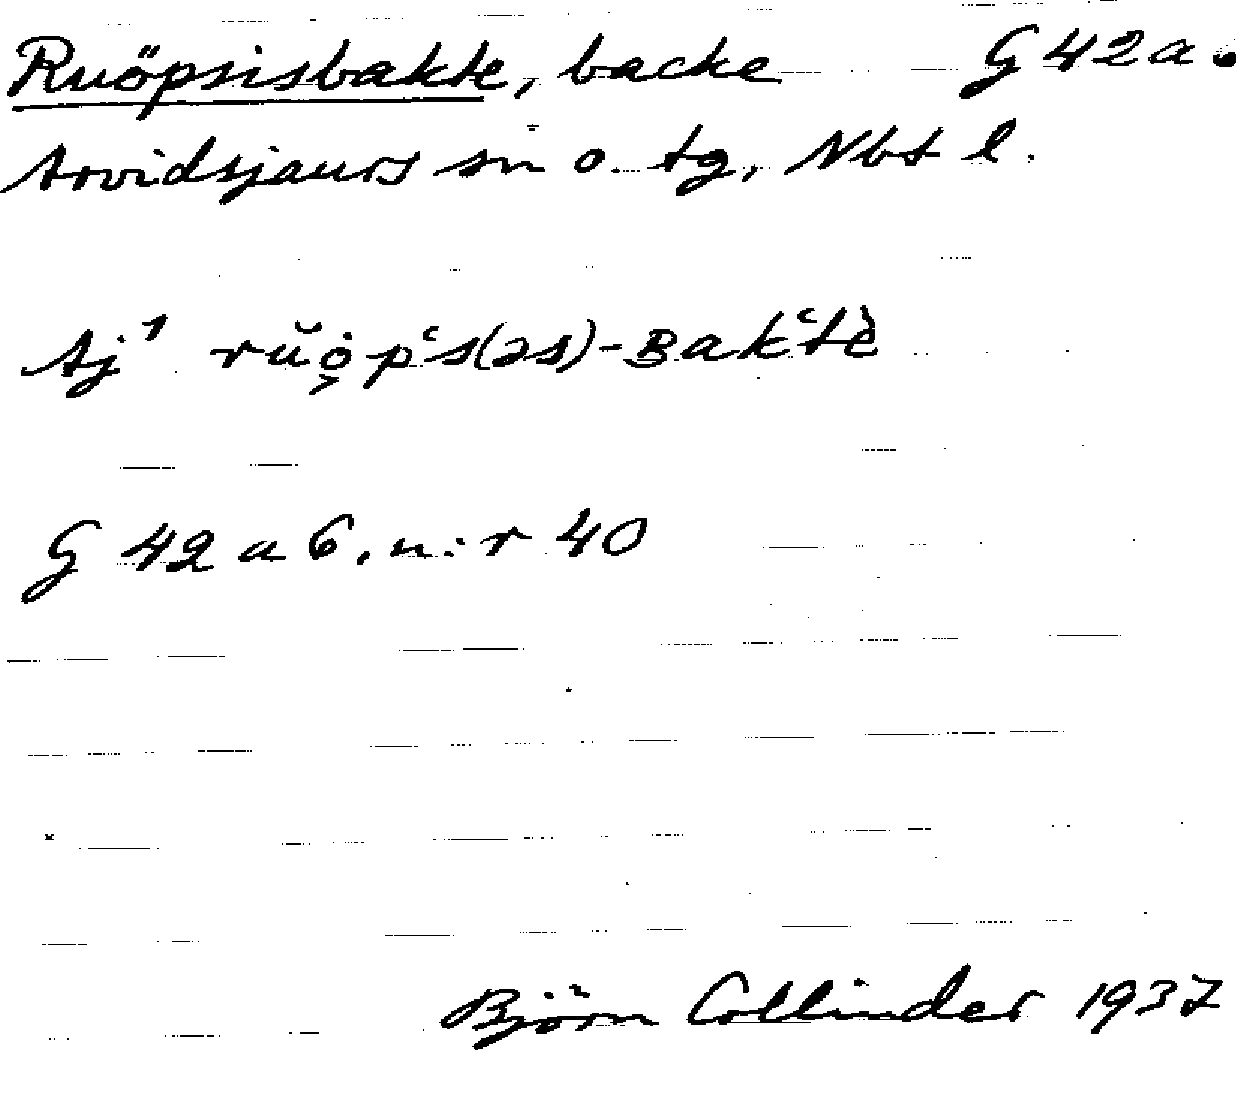 Ruöpsisbakte, backe G 42 a 6
Arvidsjaurs sn o. tg, Nbt l.
Aj¹ rŭȯ̭pʿs(əs)-ʙakʿtè
G 42 a 6, n:r 40
Björn Collinder 1937